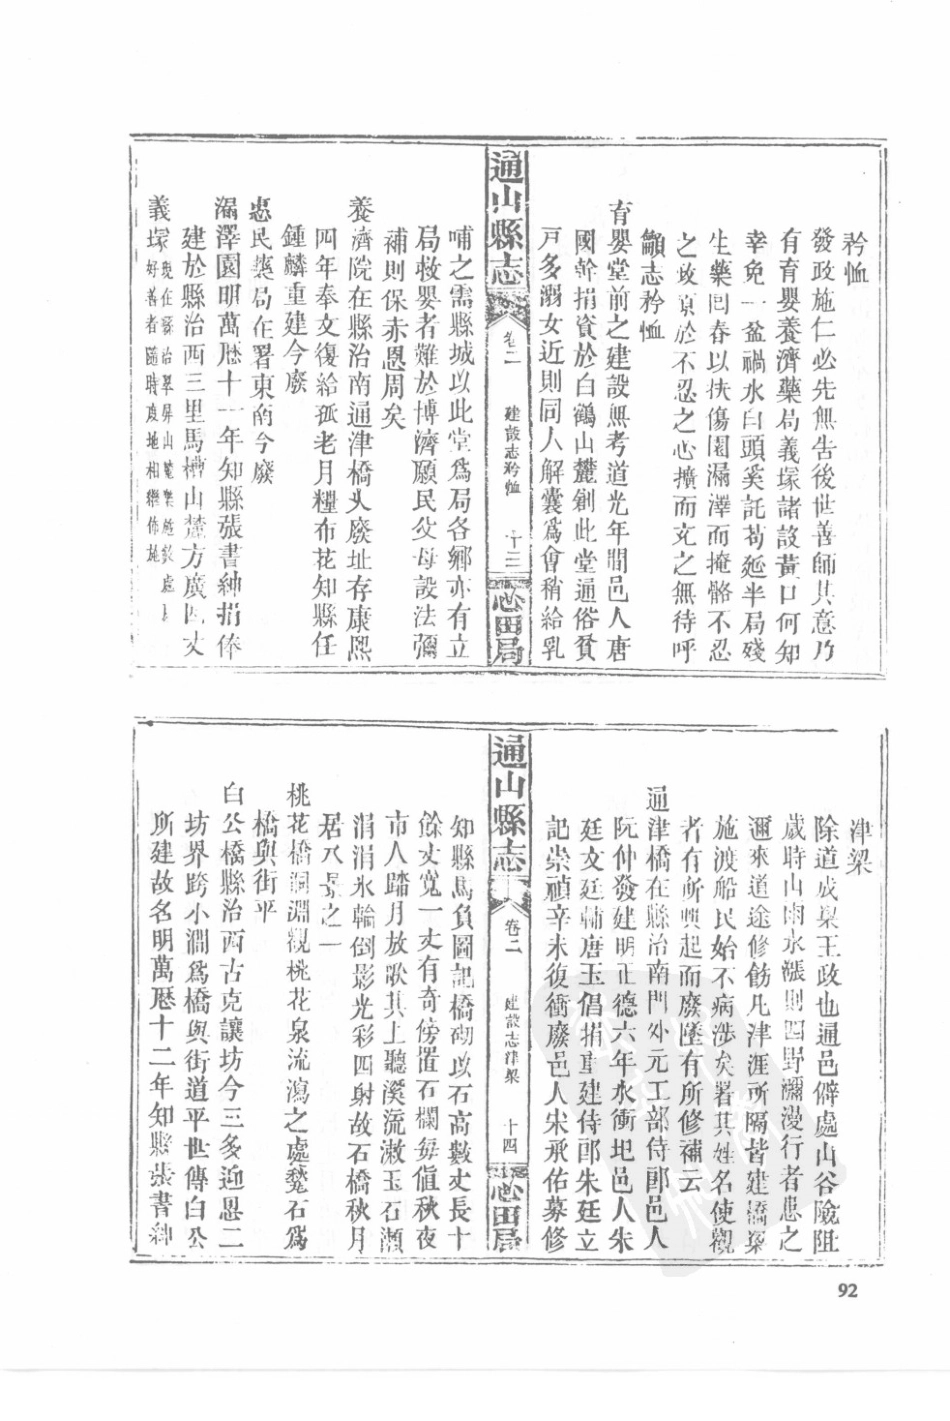 矜恤
發政施仁必先無告後世善師其意乃
有育嬰養濟藥局義塚諸設黃口何知
幸免一盆禍水白頭奚託苟延半局殘
生藥回春以扶傷園漏澤而掩骼不忍
之政原於不忍之心擴而充之無待呼
籲志矜恤
育嬰堂前之建設無考道光年間邑人唐
國幹捐資於白鶴山麓創此堂通俗貧
戸多溺女近則同人解囊爲會稍給乳
通山縣志
卷二
建設志矜恤
十三
心田局
哺之需縣城以此堂爲局各鄉亦有立
局救嬰者難於博濟願民父母設法彌
補則保赤恩周矣
養濟院在縣治南通津橋火廢址存康熙
四年奉文復給孤老月糧布花知縣任
鍾麟重建今廢
惠民藥局在署東南今廢
漏澤園明萬厯十一年知縣張書紳捐俸
建於縣治西三里馬槽山麓方廣四丈
義塚 在縣治翠屏山麓
好善者隨時度地相繼佈施
津梁
除道成梁王政也通邑僻處山谷險阻
歲時山雨水漲則四野瀰漫行者患之
邇來道途修飭凡津涯所隔皆建橋梁
施渡船民始不病涉矣署其姓名使觀
者有所興起而廢墜有所修補云
通津橋在縣治南門外元工部侍郎邑人
阮仲發建明正德六年水衝圯邑人朱
廷文廷輔唐玉倡捐重建侍郎朱廷立
記崇禎辛未復衝廢邑人宋承佑募修
通山縣志
卷二
建設志津梁
十四
心田局
知縣馬負圖記橋砌以石高數丈長十
餘丈寬一丈有奇傍置石欄每値秋夜
市人踏月放歌其上聽溪流漱玉石瀬
涓涓氷輪倒影光彩四射故石橋秋月
居八景之一
桃花橋洞淵觀桃花泉流瀉之處甃石爲
橋與街平
白公橋縣治西古克讓坊今三多迎恩二
坊界跨小澗爲橋與街道平世傳白公
所建故名明萬厯十二年知縣張書紳
92